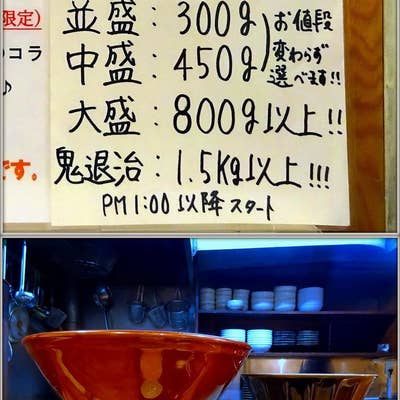 限定)
のコラ
♪
です。
並盛：300g
中盛：450g
お値段
変わらず
選べます!!
大盛：800g以上!!
鬼退治：1.5Kg以上!!!
PM1:00以降スタート